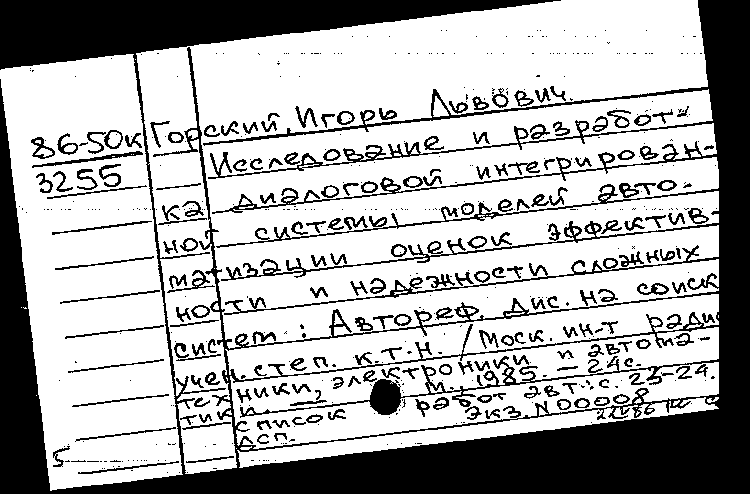 86-50к Горский, Игорь Львович.
3255 Исследование и разработ-
ка диалоговой интегрирован-
ной системы моделей авто-
матизации оценок эффектив-
ности и надежности сложных
систем: Автореф. Дис. на соиск
учен. степ. к.т.н. / Моск. ин-т радио
техники, электроники и автома-
тики. — М., 1985. — 24с.
Список работ авт.: с. 23-24.
Дсп. Экз. N 00008
5